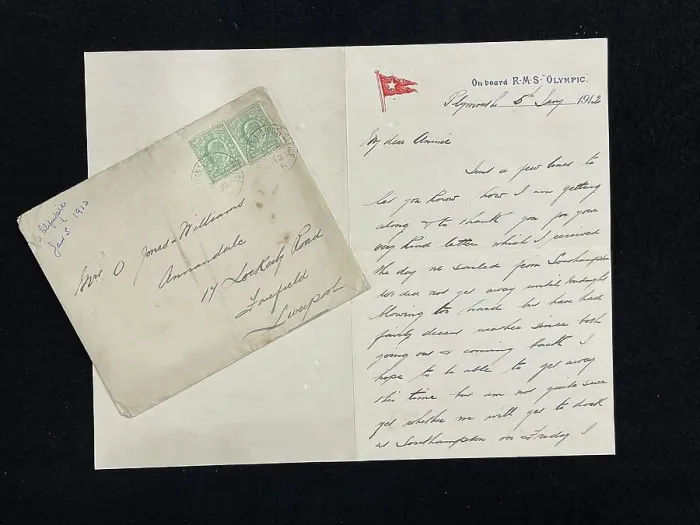 On board R.M.S. "OLYMPIC.
Plymouth 5th Jany 1912
My dear Annie
Just a few lines to
let you know how I am getting
along & to thank you for your
very kind letter which I received
the day we sailed from Southampton
we did not get away until midnight
blowing too hard but have had
fairly decent weather since both
going out & coming back I
hope to be able to get away
this time but am not quite sure
yet whether we will get to dock
at Southampton on Friday I
Olympic
Jan 5 1912
Mrs O Jones-Williams
Annandale
17 Lockerby Road
Fairfield
Liverpool